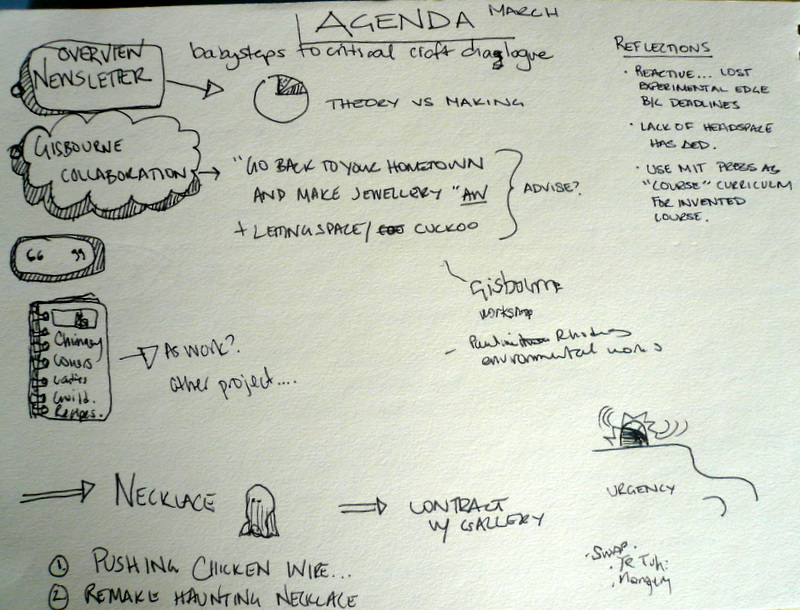 AGENDA MARCH
babysteps to critical craft diaglogue
OVERVIEW
NEWSLETTER
THEORY VS MAKING
GISBOURNE
COLLABORATION
"GO BACK TO YOUR HOMETOWN
AND MAKE JEWELLERY" AN
+ LETTING SPACE/ CUCKOO
ADVISE?
REFLECTIONS
• REACTIVE... LOST
EXPERIMENTAL EDGE
B/C DEADLINES
• LACK OF HEADSPACE
HAS DED.
• USE MIT PRESS AS
"COURSE" CURRICULUM
FOR INVENTED
COURSE.
66 99
Gisbourne
workshop
- Rhodes
environmental works
Chimney
Cowers
Ladies
Guild.
Recipes.
AS WORK?
other project....
NECKLACE
CONTRACT
W/ GALLERY
URGENCY
• SWAP.
• Te Tuhi
① PUSHING CHICKEN WIRE...
② REMAKE HAUNTING NECKLACE